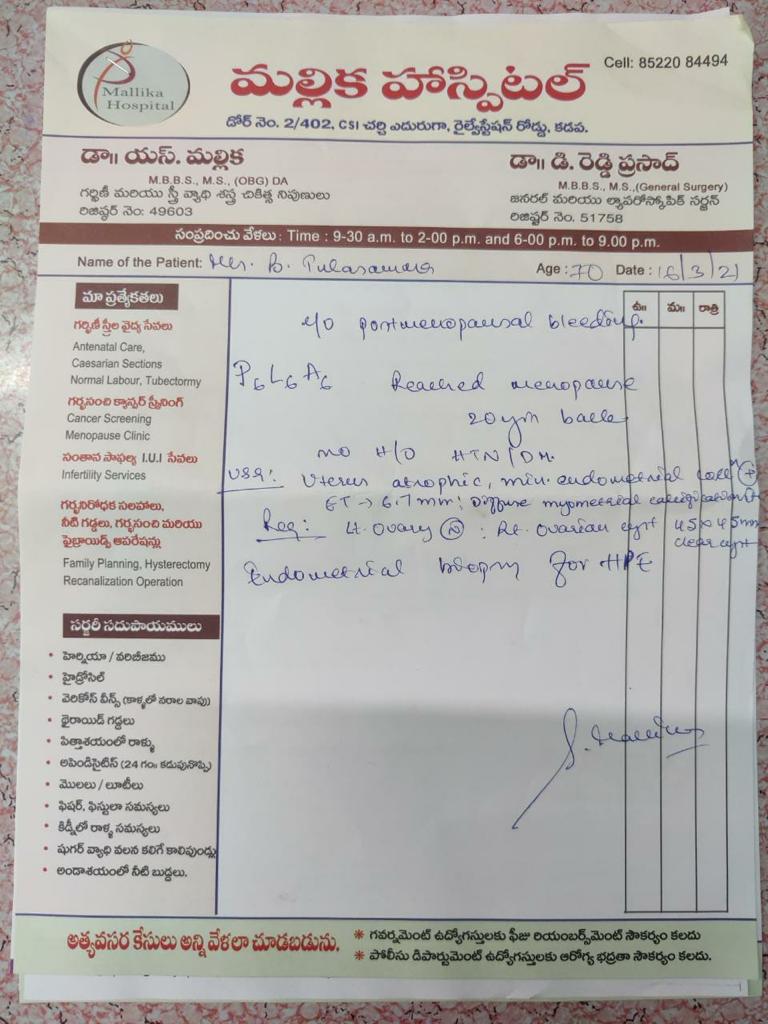 Mallika
Hospital
మల్లిక హాస్పిటల్
Cell: 85220 84494
డోర్ నెం. 2/402, CSI చర్చి ఎదురుగా, రైల్వేస్టేషన్ రోడ్డు, కడప.
డా॥ యస్. మల్లిక
M.B.B.S., M.S., (OBG) DA
గర్భిణీ మరియు స్త్రీ వ్యాధి శస్త్ర చికిత్స నిపుణులు
రిజిష్టర్ నెం: 49603
డా॥ డి. రెడ్డి ప్రసాద్
M.B.B.S., M.S.,(General Surgery)
జనరల్ మరియు ల్యాపరోస్కోపిక్ సర్జన్
రిజిష్టర్ నెం. 51758
సంప్రదించు వేళలు: Time : 9-30 a.m. to 2-00 p.m. and 6-00 p.m. to 9.00 p.m.
Name of the Patient: Mrs. B. Age : 70 Date : 16/3/21
మా ప్రత్యేకతలు
గర్భిణీ స్త్రీల వైద్య సేవలు
Antenatal Care,
Caesarian Sections
Normal Labour, Tubectormy
గర్భసంచి క్యాన్సర్ స్క్రీనింగ్
Cancer Screening
Menopause Clinic
సంతాన సాఫల్య I.U.I సేవలు
Infertility Services
గర్భనిరోధక సలహాలు,
నీటి గడ్డలు, గర్భసంచి మరియు
ఫైబ్రాయిడ్స్ ఆపరేషన్లు
Family Planning, Hysterectomy
Recanalization Operation
సర్జరీ సదుపాయములు
• హెర్నియా / వరిబీజము
• హైడ్రోసిల్
• వెరికోస్ వీన్స్ (కాళ్ళలో నరాల వాపు)
• థైరాయిడ్ గడ్డలు
• పిత్తాశయంలో రాళ్ళు
• అపెండిసైటిస్ (24 గం॥ కడుపునొప్పి)
• మొలలు / లూటీలు
• ఫిషర్, ఫిస్టులా సమస్యలు
• కిడ్నీలో రాళ్ళ సమస్యలు
• షుగర్ వ్యాధి వలన కలిగే కాలిపుండ్లు
• అండాశయంలో నీటి బుడ్డలు.
ఉ॥ మ॥ రాత్రి
postmenopausal bleeding.
P6L6A6 Reached menopause
20 back
no H/O HTN/DM.
USG: Uterus atrophic, min. endometrial (+)
ET → 6.7mm; Diffuse myometrial calcification (+)
Req: Lt. Ovary (N) : Rt. Ovarian cyst 45 x 45mm
clear cyst
Endometrial biopsy for HPE
అత్యవసర కేసులు అన్ని వేళలా చూడబడును.
* గవర్నమెంట్ ఉద్యోగస్తులకు ఫీజు రియంబర్స్‌మెంట్ సౌకర్యం కలదు
* పోలీసు డిపార్టుమెంట్ ఉద్యోగస్తులకు ఆరోగ్య భద్రతా సౌకర్యం కలదు.